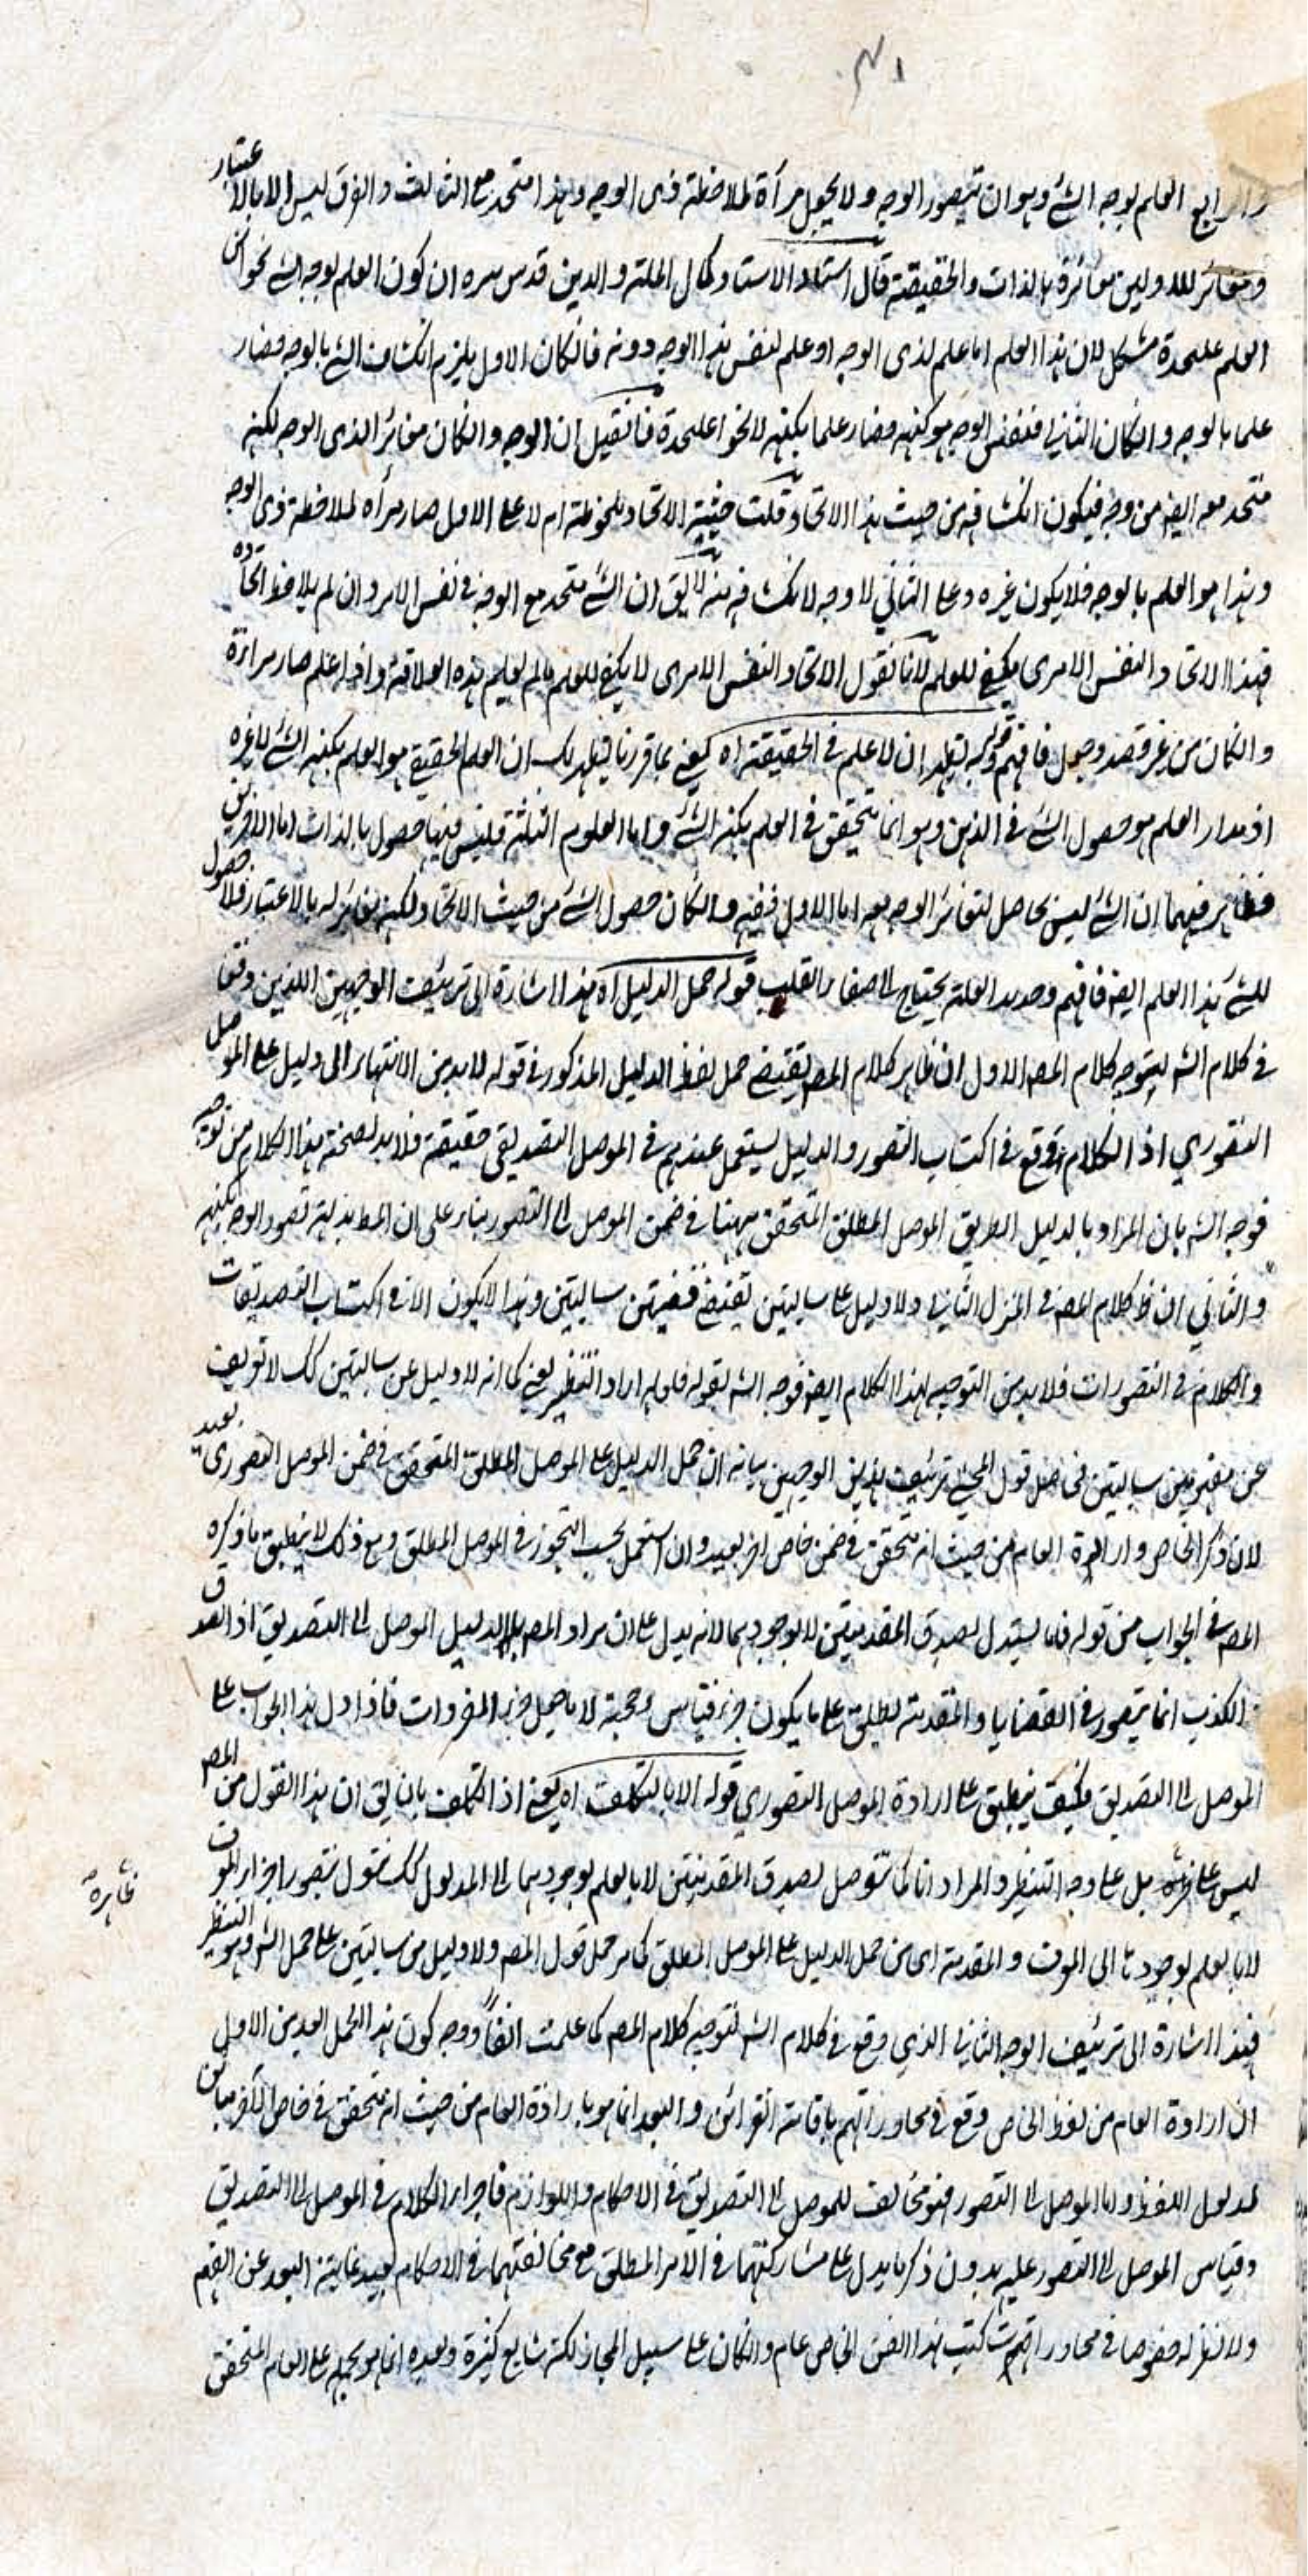 ٣١
والرابع العلم بوجه الشئ وهو ان تتصور الوجه ولا يجعل مرآة لملاحظة ذى الوجه وهذا متحد مع الثالث والفرق ليس الا بالاعتبار
ومغائر للاولين مغائرة بالذات والحقيقة قال استاذ الاستاد كمال الملة والدين قدس سره ان كون العلم بوجه الشئ نحوا من
العلم عليحدة مشكل لان هذا العلم اما علم لذى الوجه او علم لنفس هذا الوجه دونه فانكان الاول يلزم انكشاف الشئ بالوجه فصار
علما بالوجه وانكان الثانى فنفس الوجه هو كنهه فصار علما بكنهه لا نحوا عليحدة فان قيل ان الوجه وانكان مغائرا لذى الوجه لكنه
متحد معه ايضا من وجه فيكون انكشافه من حيث هذا الاتحاد قلت حيثية الاتحاد ملحوظة ام لا على الاول صار مرآة لملاحظة ذى الوجه
وهذا هو العلم بالوجه فلا يكون غيره وعلى الثانى لا وجه لانكشافه منه لا يق ان الشئ متحد مع الوجه فى نفس الامر وان لم يلاحظ اتحاده
فهذا الاتحاد النفس الامرى يكفى للعلم لانا نقول الاتحاد النفس الامرى لا يكفى للعلم مالم يعلم هذه العلاقة واذا علم صار مراة
وانكان من غير قصد وجعل فافهم قوله ليظهر ان لا علم فى الحقيقة اه يعنى بما قررنا يظهر لك ان العلم الحقيقى هو العلم بكنه الشئ لا غيره
اذ مدار العلم هو حصول الشئ فى الذهن وهو انما يتحقق فى العلم بكنه الشئ واما العلوم الثلثة فليس فيها حصول بالذات اما الاخرين
فظاهر فيهما ان الشئ ليس بحاصل لتغائر الوجه معه اما الاول ففيه وانكان حصول الشئ من حيث الاتحاد لكنه مغائر له بالاعتبار فلا حصول
للشئ بهذا العلم ايضا فافهم وحديد العلة يحتاج الى احضار القلب قوله حمل الدليل اه هذا اشارة الى تزئيف الوجهين اللذين وقعا
فى كلام الش لتوجيه كلام المص الاول ان ظاهر كلام المص يقتضى حمل لفظ الدليل المذكور فى قوله لا بد من الانتهاء الى دليل على الموصل
التصورى اذ الكلام وقع فى اكتساب التصور والدليل يستعمل عندهم فى الموصل التصديقى حقيقة فلا بد لصحة هذا الكلام من توجيه
فوجه الش بان المراد بالدليل الطريق الموصل المطلق المتحقق ههنا فى ضمن الموصل الى التصور بناء على ان المط بداهة تصور الوجه بكنهه
والثانى ان ظ كلام المص فى المنزل الثانى ولا دليل على سالبتين تقتضى قضيتين سالبتين وهذا لا يكون الا فى اكتساب التصديقات
والكلام فى التصورات فلا بد من التوجيه لهذا الكلام ايضا فوجه الش بقوله فلعله اراد التنظير يعنى كما انه لا دليل عن سالبتين كك لا تعريف
عن مفهومين سالبتين فحاصل قول المحشى تزئيف هذين الوجهين بيانه ان حمل الدليل على الموصل المطلق المتحقق فى ضمن الموصل التصورى بعيد
لان ذكر الخاص وارادة العام من حيث انه متحقق فى ضمن خاص اخر بعيد وان استعمل بحسب التجوز فى الموصل المطلق ومع ذلك لا ينطبق ما ذكره
المص فى الجواب من قوله فانما يستدل لصدق المقدمتين لا بوجودهما لانه يدل على ان مراد المص بالدليل الموصل الى التصديق اذ الصدق
والكذب انما يتصور فى القضايا والمقدمة تطلق على ما يكون جزء قياس او حجة لا ما جعل جزء المفردات فاذا دل هذا الجواب على
الموصل الى التصديق فكيف ينطبق على ارادة الموصل التصورى قوله الا بالتكلف اه يعنى اذ التكلف بان يق ان هذا القول من المص
ليس على ظاهره بل على وجه التنظير والمراد انا كما نتوصل لصدق المقدمتين لا بالعلم بوجودهما الى المدلول كك نتوصل بتصور اجزاء المعرف
لا بالعلم بوجودها الى المعرف والمقدمة اى من حمل الدليل على الموصل المطلق كما مر حمل قول المص ولا دليل من سالبتين على حمل الش وهو التنظير
فهذا اشارة الى تزئيف الوجه الثانى الذى وقع فى كلام الش لتوجيه كلام المص كما علمت انفا ووجه كون هذا الحمل ابعد من الاول
ان ارادة العام من لفظ الخاص وقع فى محاوراتهم باقامة القرائن والبعد انما هو بارادة العام من حيث انه متحقق فى خاص الآخر مبائن
لمدلول اللفظ واما الموصل الى التصور فهو مخالف للموصل الى التصديق فى الاحكام واللوازم فاجراء الكلام فى الموصل الى التصديق
وقياس الموصل الى التصور عليه بدون ذكر ما يدل على مشاركتهما فى الامر المطلق مع مخالفتهما فى الاحكام بعيد غاية البعد عن الفهم
ولا نظير له خصوصا فى محاوراتهم كتب هذا الفن الخاص عام وانكان على سبيل المجاز لكنه شايع كثيرة وبعده انما هو بحمله على العام المتحقق
ظاهره